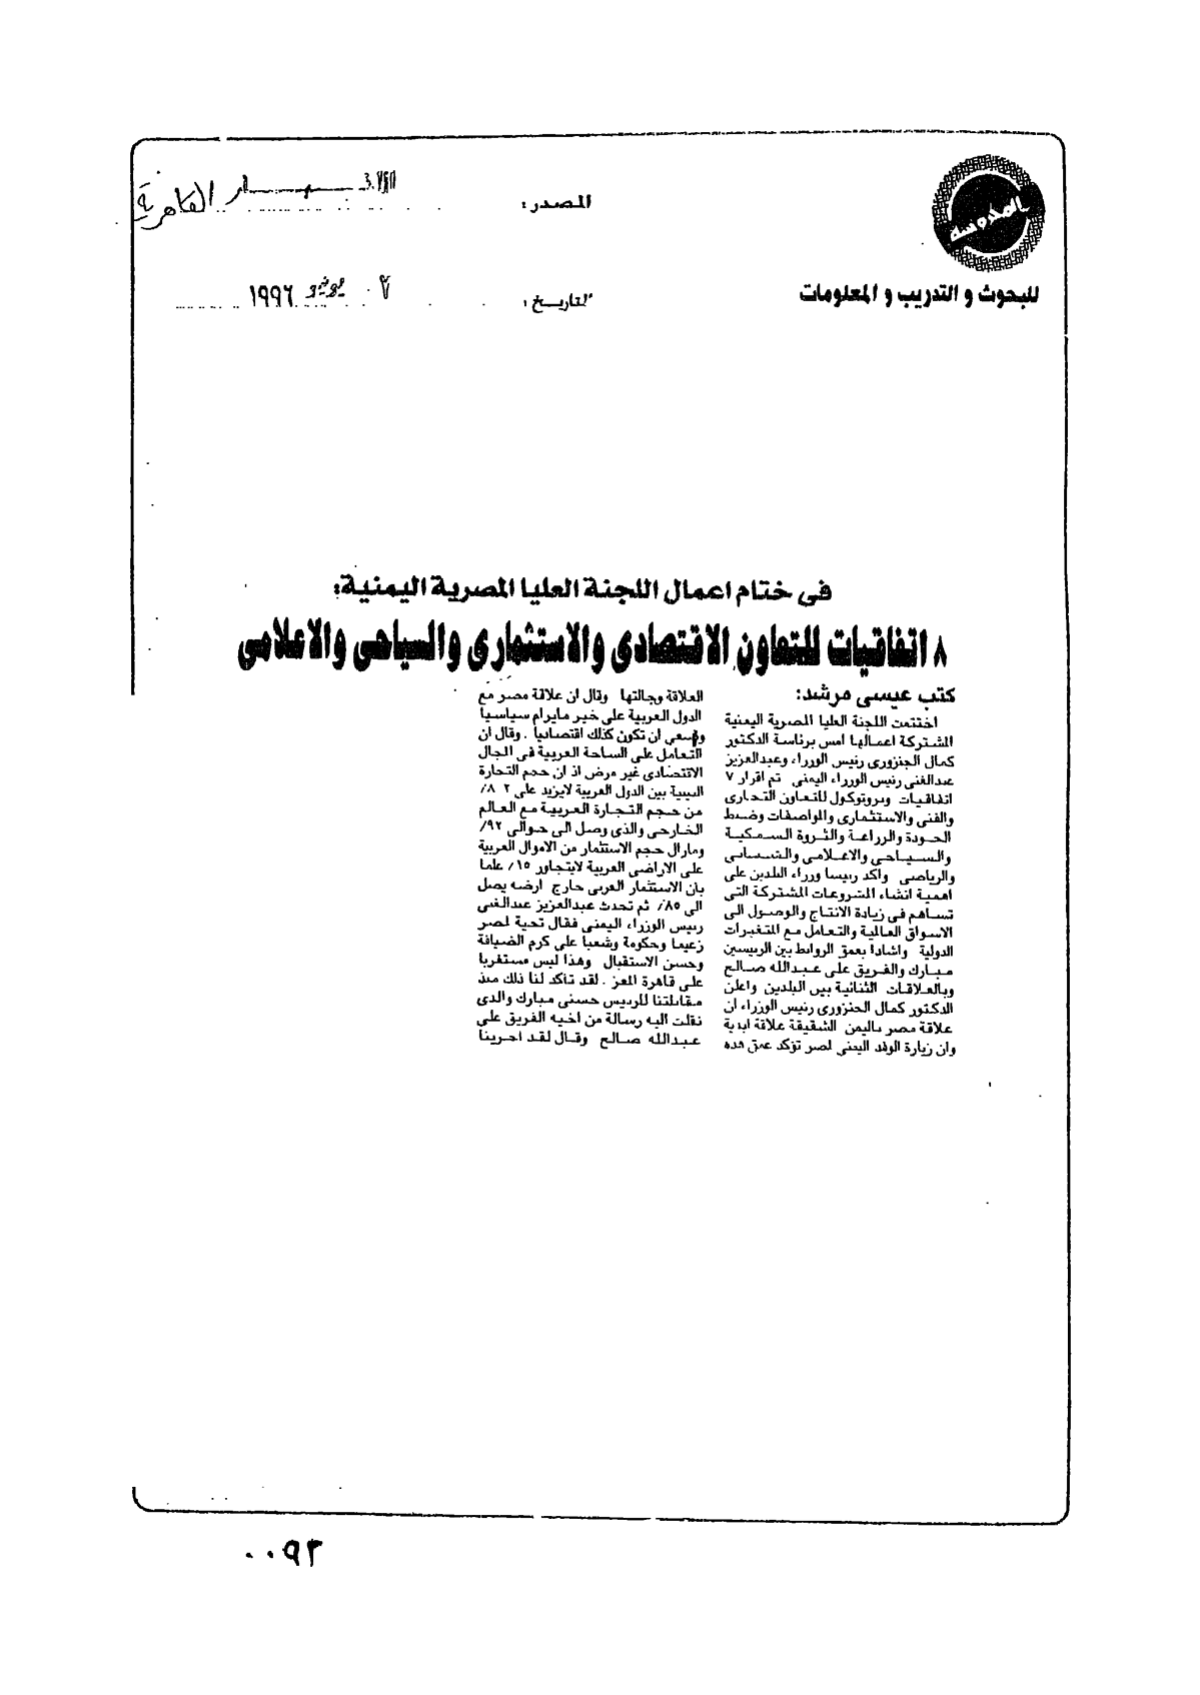 المحروسة
للبحوث و التدريب و المعلومات
المصدر: الاخبار القاهرية
التاريخ: ٢ يونيو ١٩٩٦
فى ختام اعمال اللجنة العليا المصرية اليمنية:
٨ اتفاقيات للتعاون الاقتصادى والاستثمارى والسياحى والاعلامى
كتب عيسى مرشد:
اختتمت اللجنة العليا المصرية اليمنية
المشتركة اعمالها امس برئاسة الدكتور
كمال الجنزورى رئيس الوزراء وعبدالعزيز
عبدالغنى رئيس الوزراء اليمنى تم اقرار ٧
اتفاقيات وبروتوكول للتعاون التجارى
والفنى والاستثمارى والمواصفات وضبط
الجودة والزراعة والثروة السمكية
والسياحى والاعلامى والشبابى
والرياضى واكد رئيسا وزراء البلدين على
اهمية انشاء المشروعات المشتركة التى
تساهم فى زيادة الانتاج والوصول الى
الاسواق العالمية والتعامل مع المتغيرات
الدولية واشادا بعمق الروابط بين الرئيسين
مبارك والفريق على عبدالله صالح
وبالعلاقات الثنائية بين البلدين واعلن
الدكتور كمال الجنزورى رئيس الوزراء ان
علاقة مصر باليمن الشقيقة علاقة ابدية
وان زيارة الوفد اليمنى لمصر تؤكد عمق هذه
العلاقة وجالتها وقال ان علاقة مصر مع
الدول العربية على خير مايرام سياسيا
ونسعى ان تكون كذلك اقتصاديا . وقال ان
التعامل على الساحة العربية فى المجال
الاقتصادى غير مرض اذ ان حجم التجارة
البينية بين الدول العربية لايزيد على ٨٫٢٪
من حجم التجارة العربية مع العالم
الخارجى والذى وصل الى حوالى ٩٢٪
ومازال حجم الاستثمار من الاموال العربية
على الاراضى العربية لايتجاوز ١٥٪ علما
بان الاستثمار العربى خارج ارضه يصل
الى ٨٥٪ ثم تحدث عبدالعزيز عبدالغنى
رئيس الوزراء اليمنى فقال تحية لمصر
زعيما وحكومة وشعبا على كرم الضيافة
وحسن الاستقبال وهذا ليس مستغربا
على قاهرة المعز . لقد تاكد لنا ذلك منذ
مقابلتنا للرئيس حسنى مبارك والذى
نقلت اليه رسالة من اخيه الفريق على
عبدالله صالح وقال لقد اجرينا
٠٠٩٣